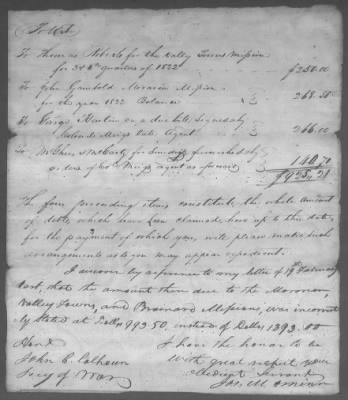 To Thomas Roberts for the Valley Towns Mission
for 3d & 4th quarters of 1822 $250.00
To John Gambold Moravian Mission
for the year 1822 Balance 268.50
To George Harlin on a due bill signed by
Colonel Meigs late Agent 266.00
To McGhee & McCarty for Sundries furnished by
order of Col Meigs agent as 140.70
$925.20
The four preceeding items constitute the whole amount
of debts, which have been claimed here up to this date,
for the payment of which you will please make such
arrangements as you may appear expedient.
I discover by reference to my letter of 19th February
last, that the amount then due to the Moravian,
Valley Towns, and Brainard Missions, was incorrectly
Stated at Dolls 993.50, instead of Dolls 1393.00
I have the honor to be
With great respect your
Obedient Servant
John C. Calhoun
Secy of War
Jos. McMinn